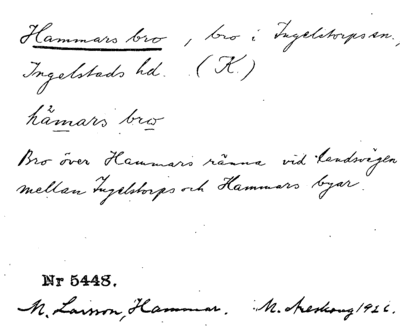 Hammars bro, bro i Ingelstorps sn.,
Ingelstads hd. (K.)
håmars bro
Bro över Hammars ränna vid landsvägen
mellan Ingelstorps och Hammars byar.
Nr 5448.
M. Larsson, Hammar. M. Areskoug 1926.